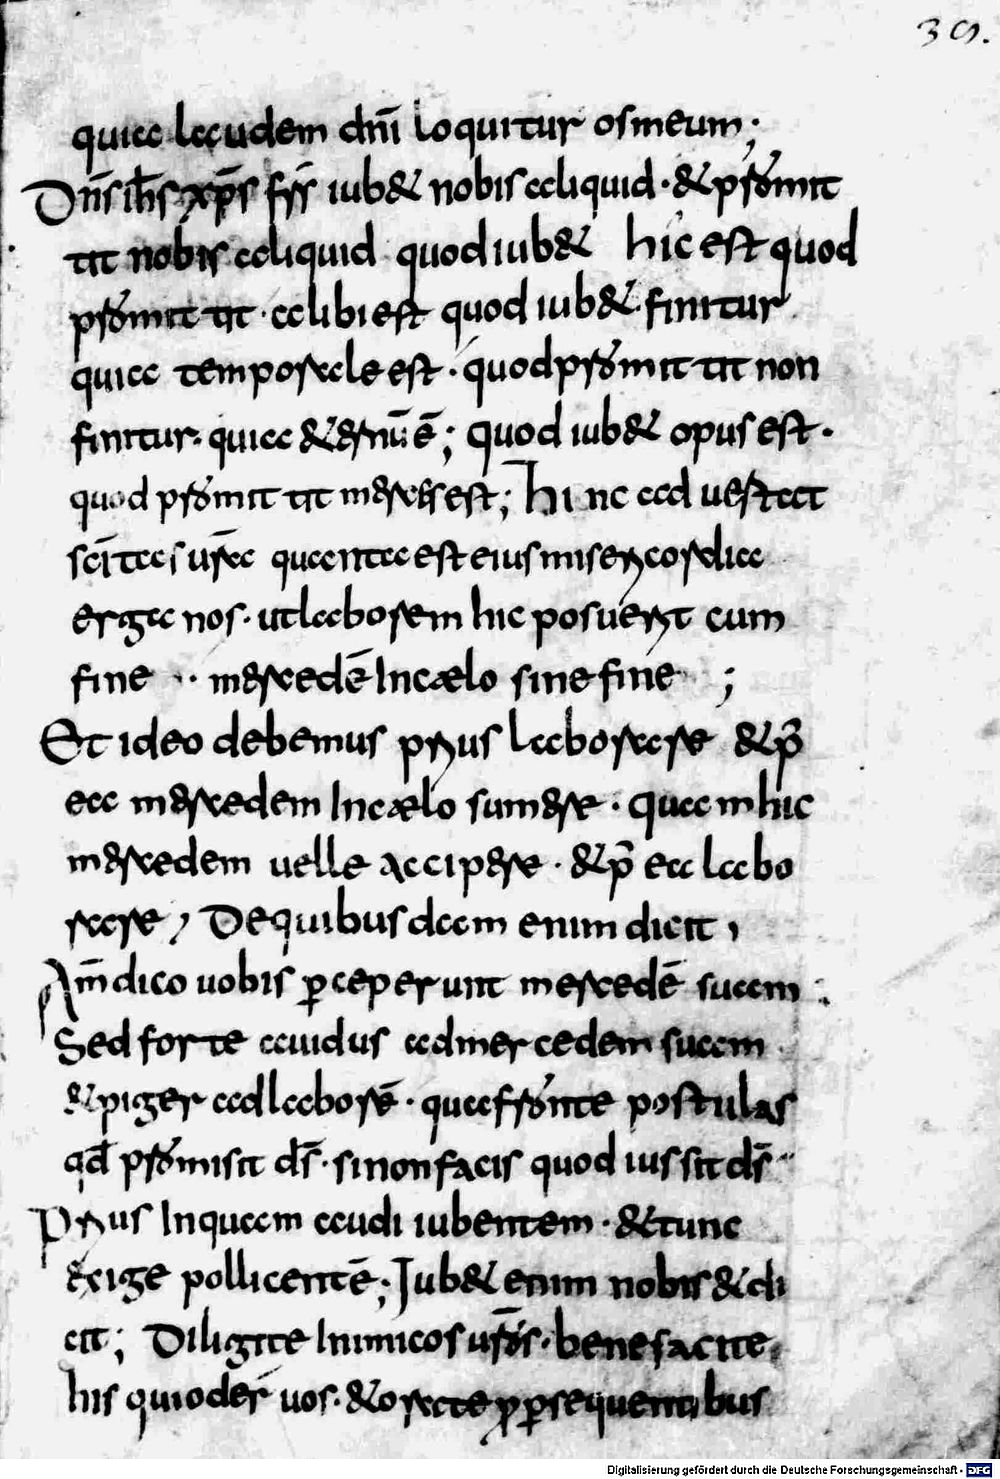 39.
quia laudem dn̄i loquitur os meum;
Dn̄s ih̄s xp̄s frs̄ iub& nobis aliquid · & promit
tit nobis aliquid quod iub& hic est quod
promittit · alibi est quod iub& · finitur
quia temporale est · quod promittit non
finitur · quia &ernū ē; quod iub& opus est ·
quod promittit merces est; hinc ad uestat
sc̄itas urā quanta est eius misericordia
erga nos · ut laborem hic posuerit cum
fine ·· mercedē In cælo sine fine ;
Et ideo debemus prius laborare & p̄
ea mercedem In cælo sumere · quam hic
mercedem uelle accipere · & p̄ ea labo
rare , De quibusdam enim dicit ,
Am̄ dico uobis perceperunt mercedē suam :
Sed forte auidus ad mercedem suam
& piger ad laborē · qua fronte postulas
qd̄ promisit ds̄ · si non facis quod iussit ds̄ ··
Prius Inquam audi iubentem · & tunc
exige pollicentē; Iub& enim nobis & di
cit; Diligite Inimicos uros̄ · benefacite
his qui oder̄ uos · & orate p persequentibus
Digitalisierung gefördert durch die Deutsche Forschungsgemeinschaft - DFG